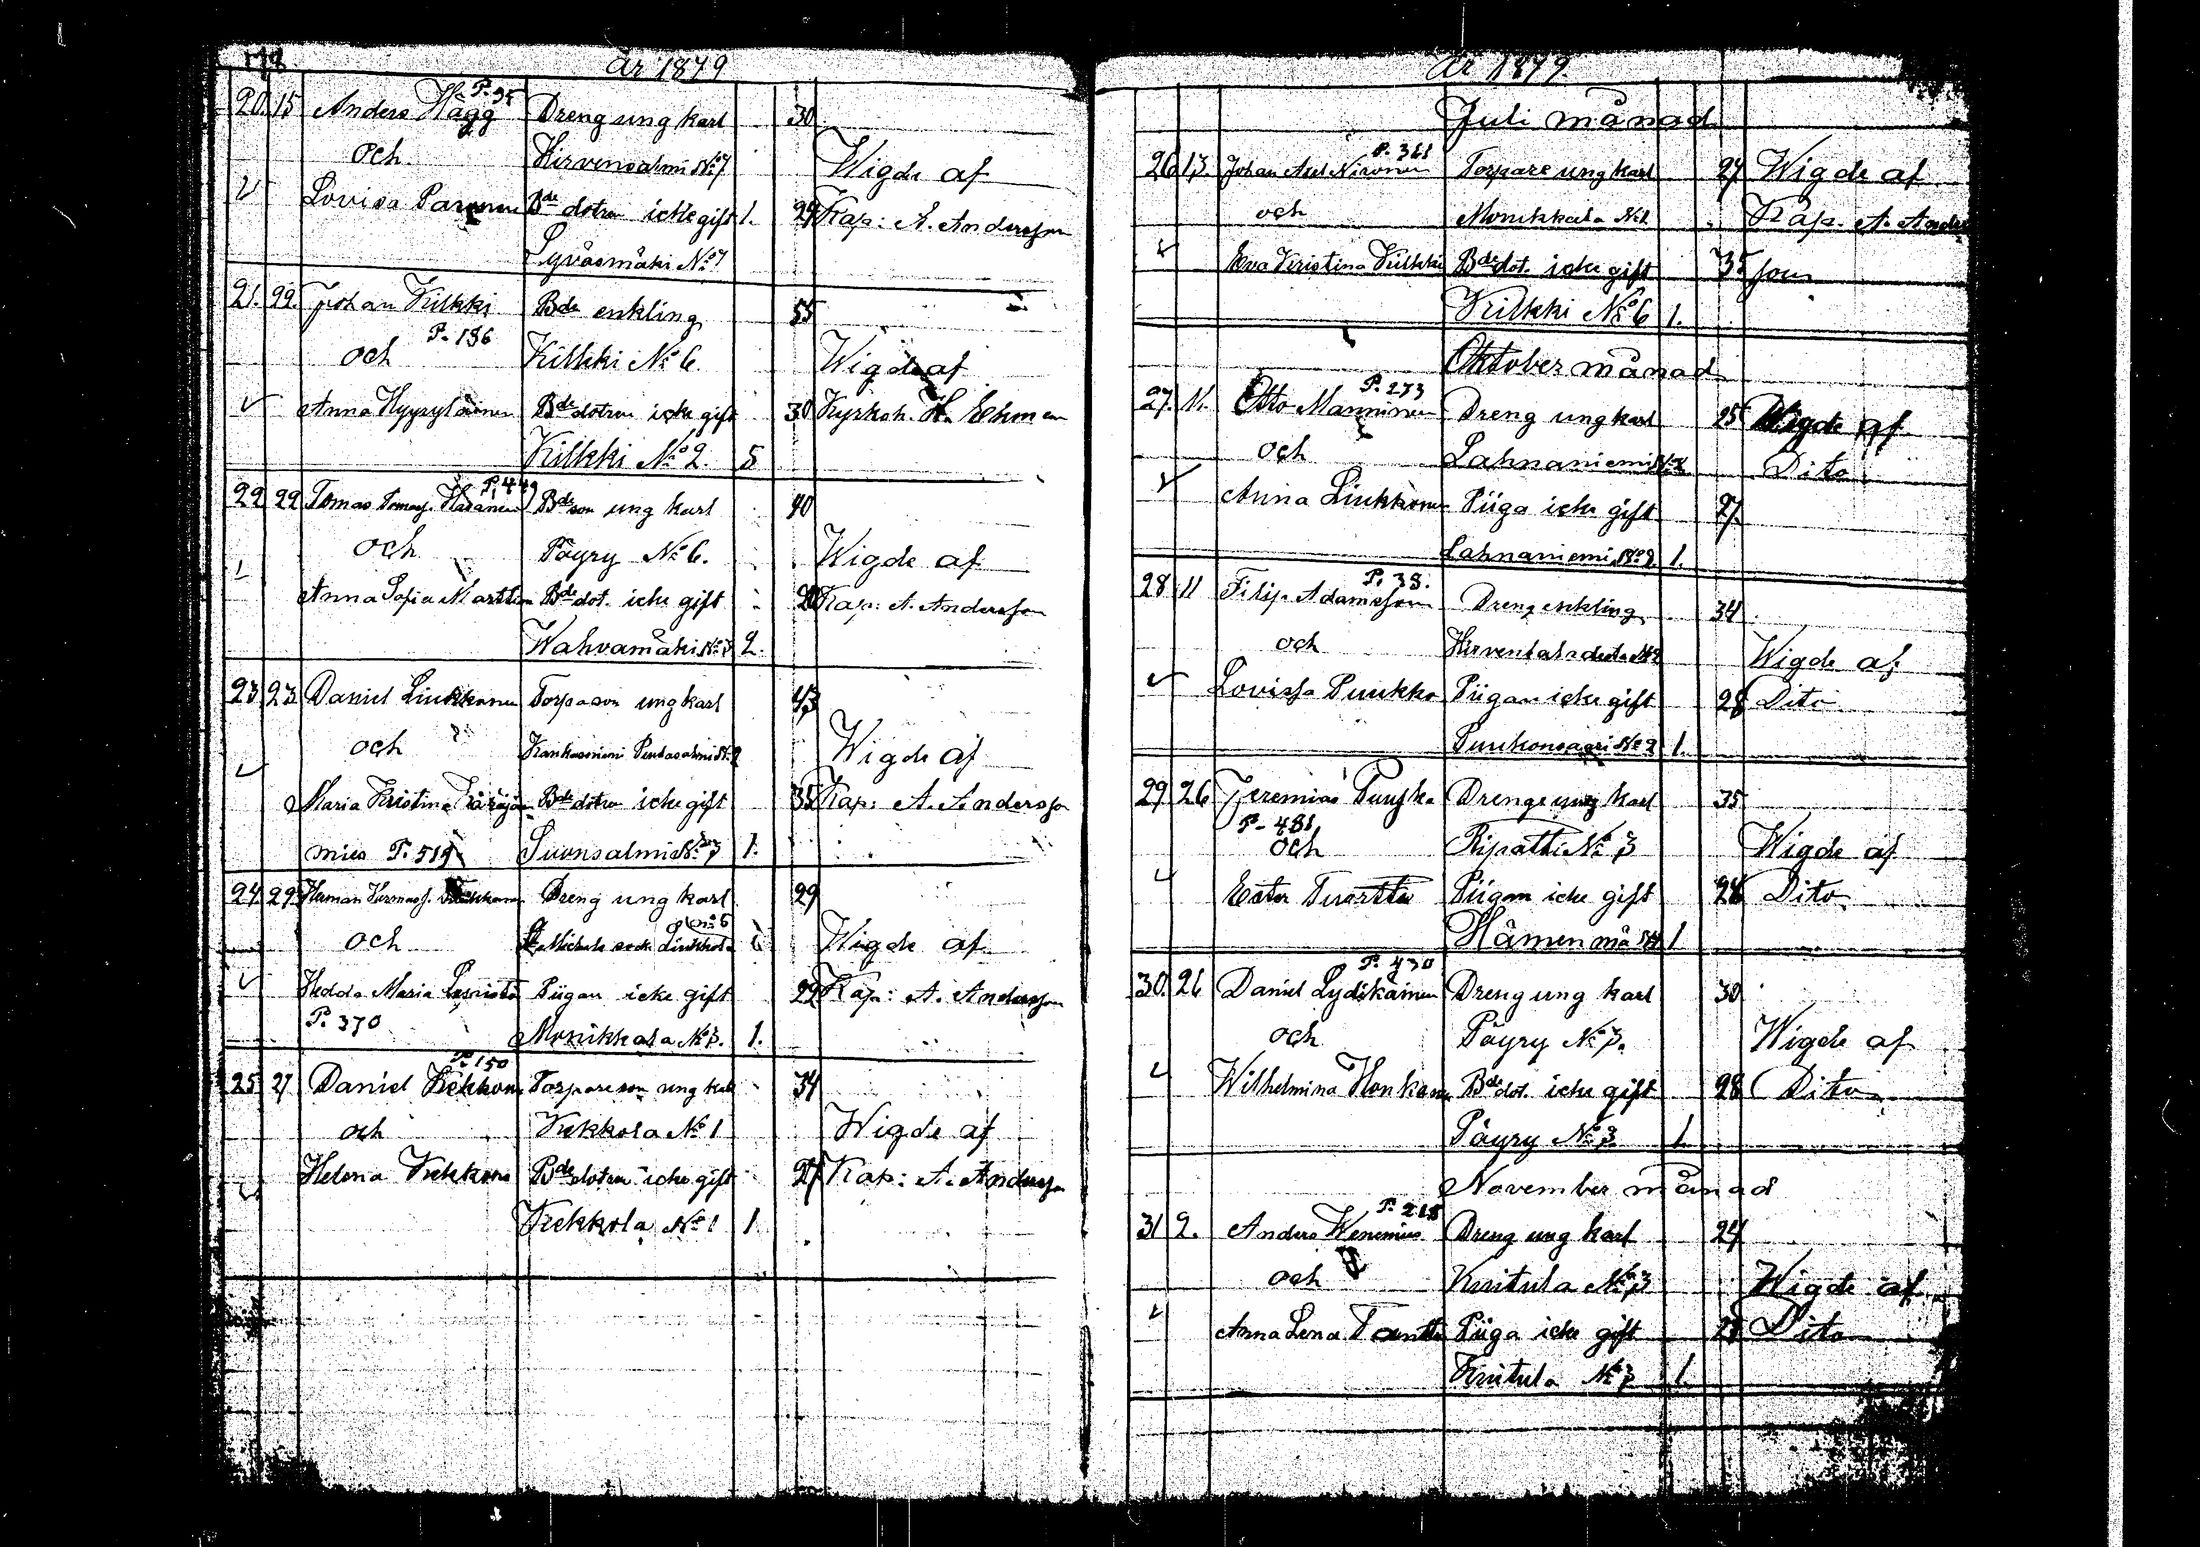 År 1879
P. 95
20. 15 Anders Hägg Dreng ung karl 30
och Hirvensalmi No 7 Wigde af
Lovisa Parinen Bde dotren icke gift 1. 29 Kap: A. Andersson
Syväsmäki No 7
21. 22. Johan Kilkki Bde enkling 55
P. 136
och Kilkki No 6. Wigde af
Anna Bde dotren icke gift 30 Kyrkoh. H. Ehman
Kilkki No 2. 5
P. 449
22 22 Tomas Tomasf. Bde son ung karl 40
och Päyry No 6. Wigde af
Anna Sofia Marttinen Bde dot. icke gift Kap: A. Andersson
Wahvamäki No 3 2.
23 23 Daniel Liukkonen Torpareson ung karl 43
och Kankasniemi No 2 Wigde af
Maria Kristina Bde dotren icke gift 35 Kap: A. Andersson
mies P. 519 Suonsalmi No 3 1.
24 29 Herman Dreng ung karl 29
No 6
och St Michels sock Liukkola Wigde af
Hedda Maria Piigan icke gift 22 Kap: A. Andersson
P. 370 Monikkala No 3. 1.
P. 150
25 27 Daniel Kekkonen Torpareson ung karl 34
och Kekkola No 1 Wigde af
Helena Kekkonen Bde dotren icke gift 27 Kap: A. Andersson
Kekkola No 1 1
År 1879.
Juli månad
P. 361
26 13. Johan Axel Nironen Torpare ung karl 27 Wigde af
och Monikkala No 2 Kap. A. Anders
Eva Kristina Kilkki Bde dot. icke gift 35 son
Kilkki No 6 1.
Oktober månad
P. 273
27. 11. Otto Manninen Dreng ung karl 25 Wigde af
och Lahnaniemi No 2 Dito
Anna Liukkonen Piiga icke gift 27
Lahnaniemi No 2 1.
P. 38.
28 11 Filip Adamsson Dreng enkling 34
och Wigde af
Lovissa Puukko Piigan icke gift 28 Dito
Puukonsaari No 2 1.
29 26 Jeremias Dreng ung karl 35
P. 481
och Ripatti No 3 Wigde af
Ester Piigan icke gift 28 Dito
1
P. 430
30. 26 Daniel Lydikäinen Dreng ung karl 30
och Päyry No 3. Wigde af
Wilhelmina Honkanen Bde dot. icke gift 28 Dito
Päyry No 3 1
November månad
P. 218
31 2. Anders Wenenius Dreng ung karl 24
och Kuitula No 3 Wigde af
Anna Lena Piiga icke gift Dito
Kuitula No 3 1